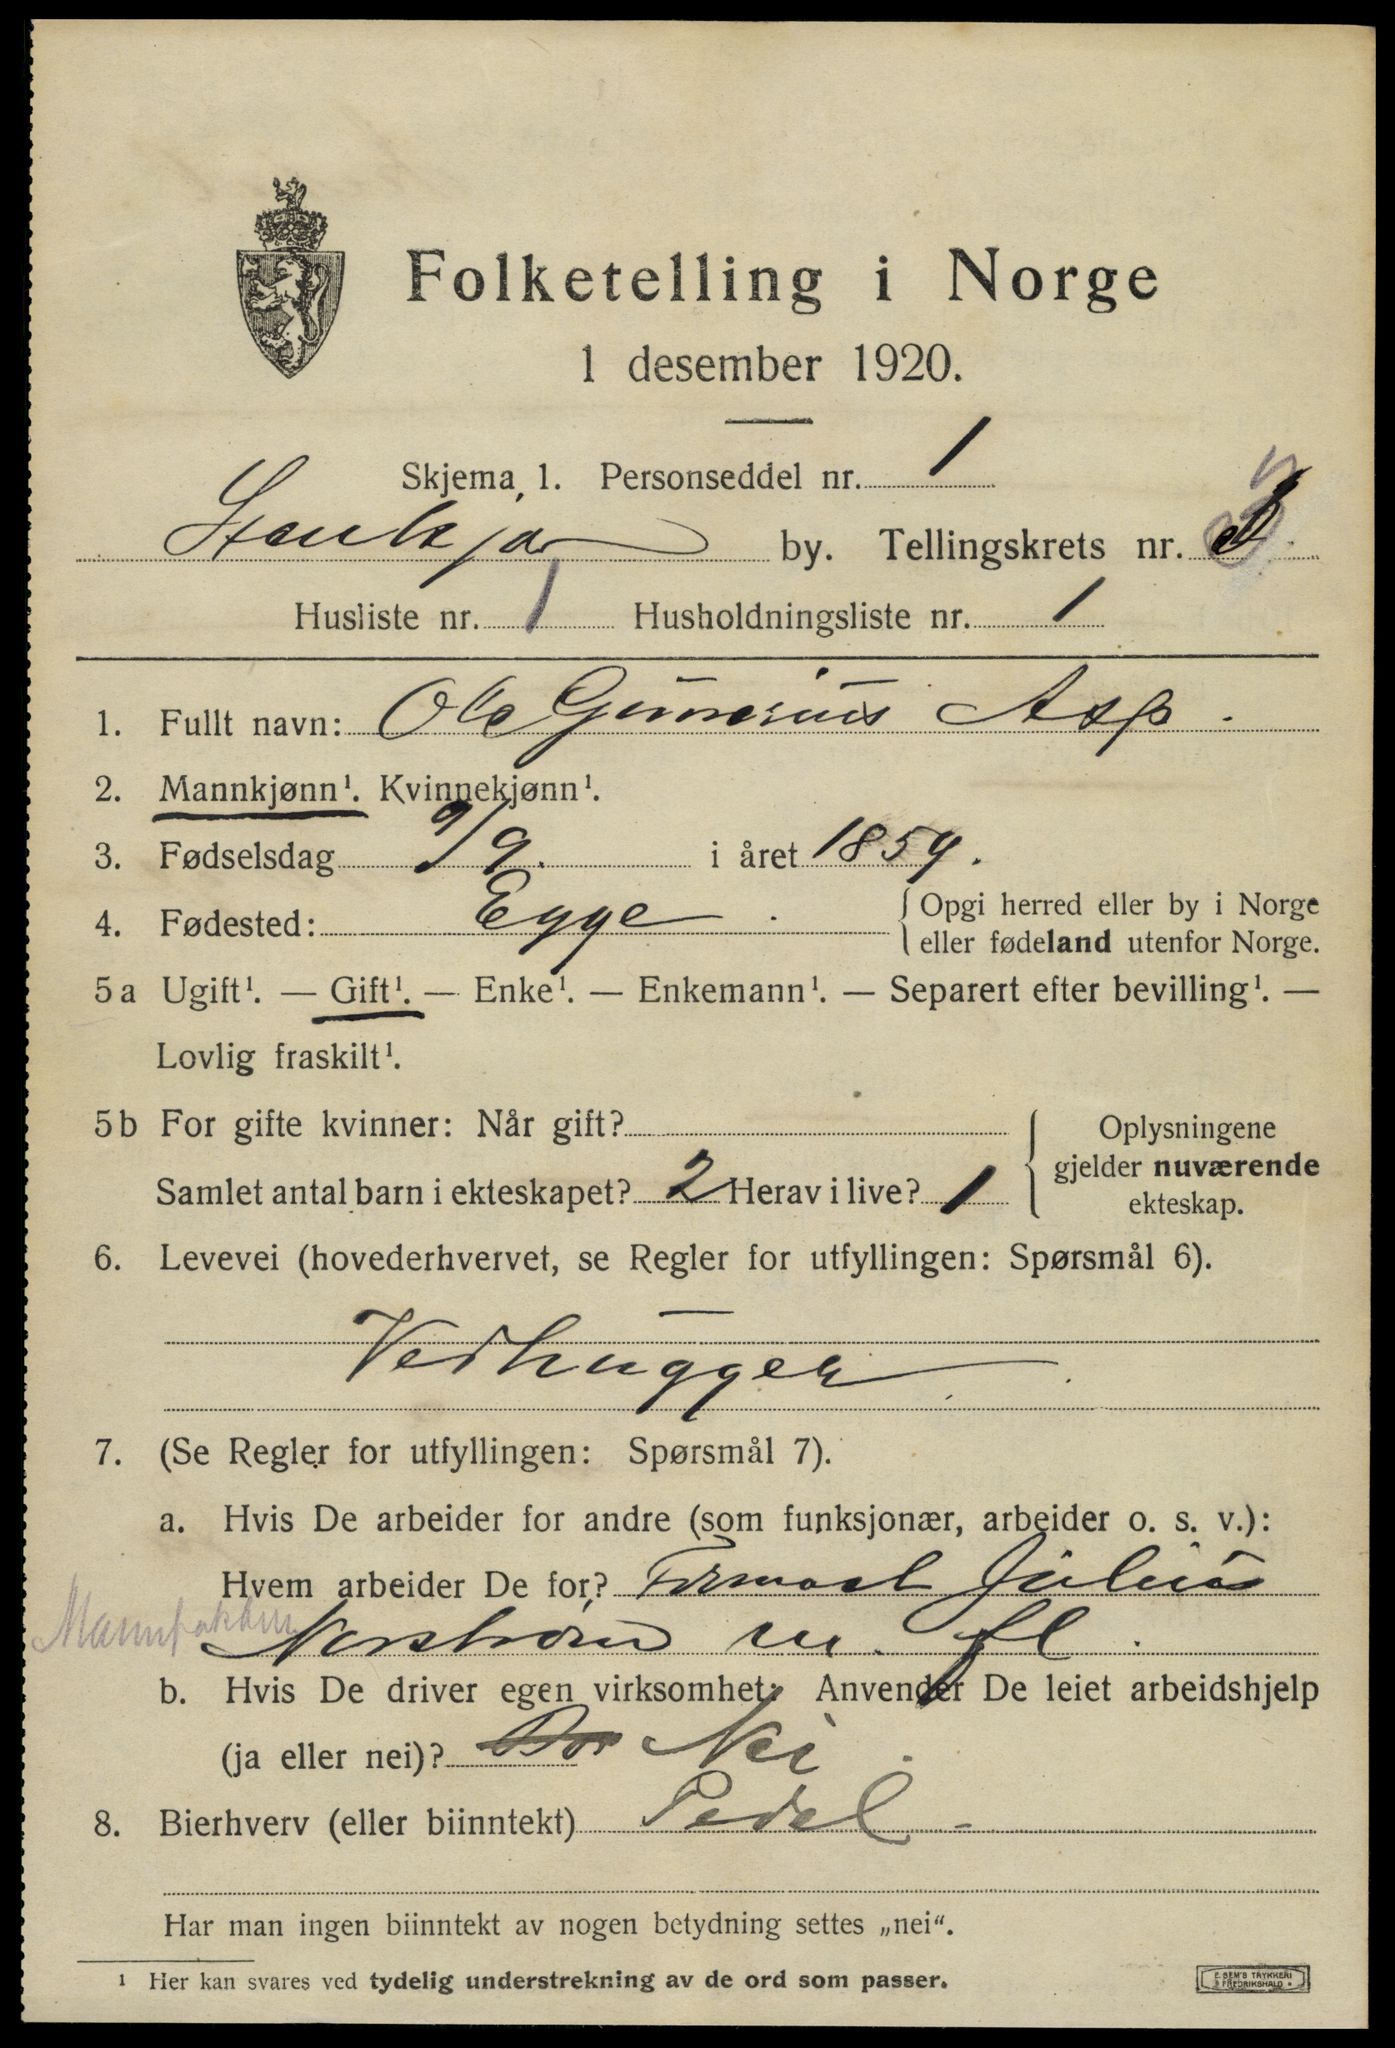 Folketelling i Norge
1 desember 1920.
Skjema 1. Personseddel nr. 1
Stenkjær by. Tellingskrets nr.
Husliste nr. 1 Husholdningsliste nr. 1
1. Fullt navn: Ole Gunerius Asp.
2. Mannkjønn¹. Kvinnekjønn¹.
3. Fødselsdag 9/9. i året 1859.
4. Fødested: Egge. { Opgi herred eller by i Norge
eller fødeland utenfor Norge.
5a Ugift¹. — Gift¹. — Enke¹. — Enkemann¹. — Separert efter bevilling¹. —
Lovlig fraskilt¹.
5b For gifte kvinner: Når gift?
Samlet antal barn i ekteskapet? 2 Herav i live? 1
{ Oplysningene
gjelder nuværende
ekteskap.
6. Levevei (hovederhvervet, se Regler for utfyllingen: Spørsmål 6).
Vedhugger
7. (Se Regler for utfyllingen: Spørsmål 7).
a. Hvis De arbeider for andre (som funksjonær, arbeider o. s. v.):
Hvem arbeider De for? Formand Julius
Norstrøm m. fl.
b. Hvis De driver egen virksomhet: Anvender De leiet arbeidshjelp
(ja eller nei)? Nei.
8. Bierhverv (eller biinntekt) Pedel -
Har man ingen biinntekt av nogen betydning settes „nei“.
¹ Her kan svares ved tydelig understrekning av de ord som passer.
E. SEM'S TRYKKERI
FREDRIKSHALD